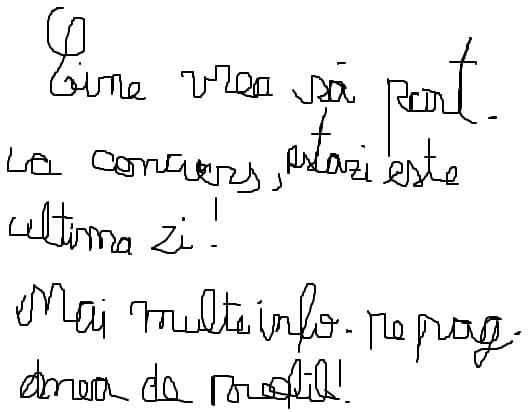 Cine vrea să part.
la concurs, astazi este
ultima zi!
Mai multe info. pe pag.
mea de profil!